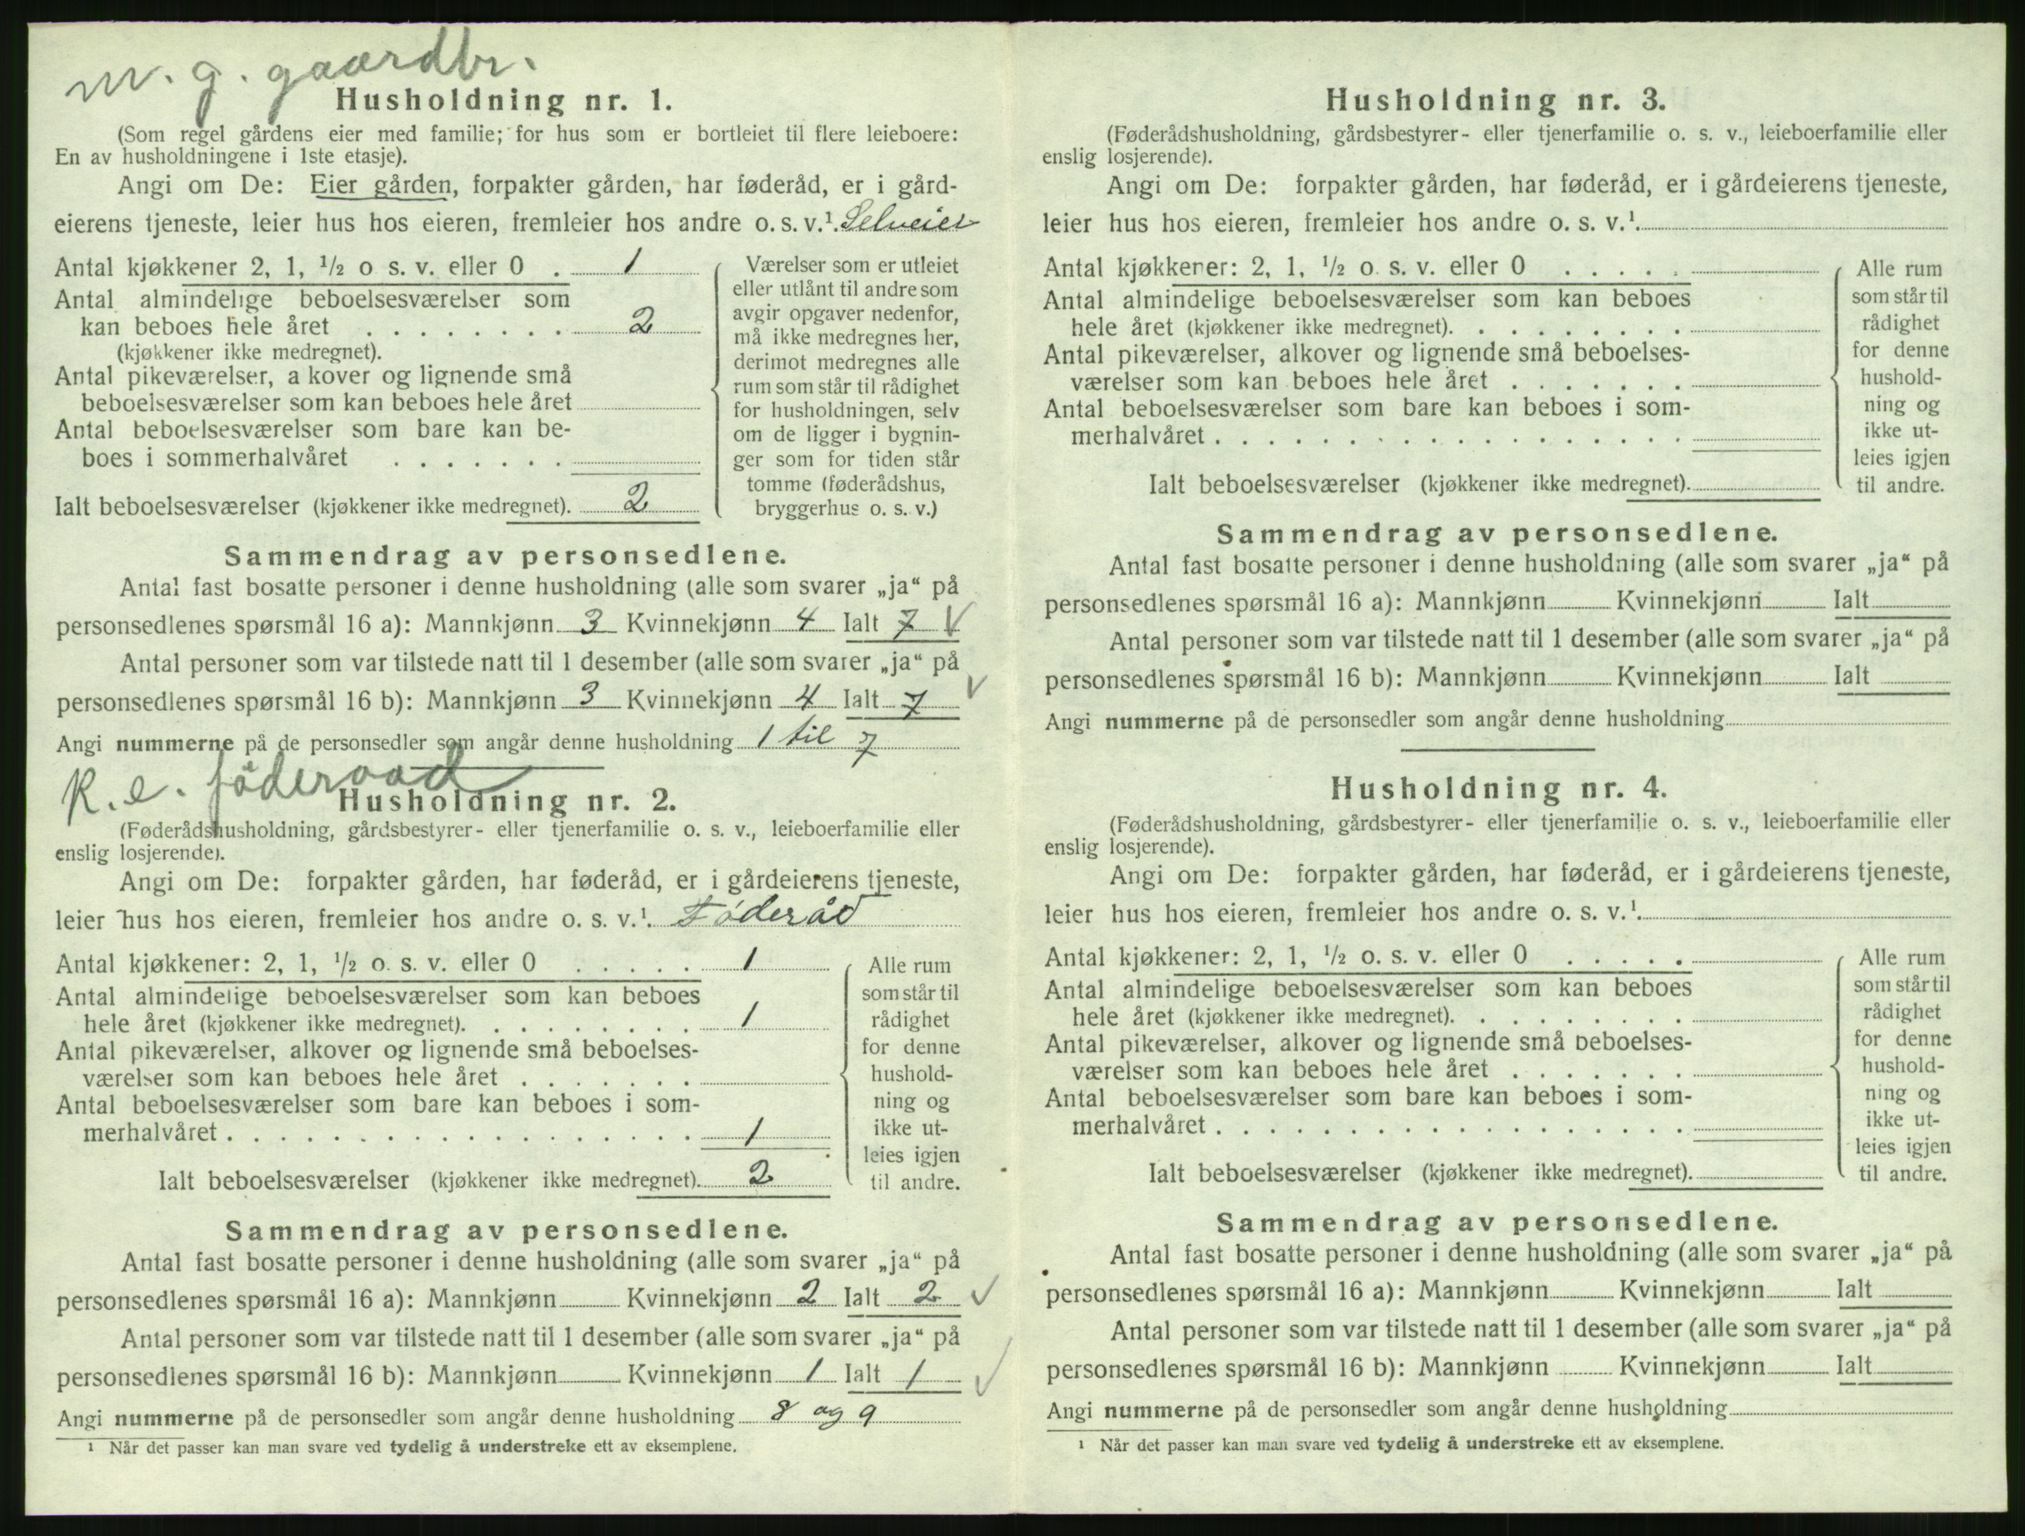 m. g. gaardbr.
Husholdning nr. 1.
(Som regel gårdens eier med familie; for hus som er bortleiet til flere leieboere:
En av husholdningene i 1ste etasje).
Angi om De: Eier gården, forpakter gården, har føderåd, er i gård-
eierens tjeneste, leier hus hos eieren, fremleier hos andre o. s. v.¹ Selveier
Antal kjøkkener 2, 1, ½ o s. v. eller 0 . 1
Antal almindelige beboelsesværelser som
kan beboes hele året . . . . . . . . 2
(kjøkkener ikke medregnet).
Antal pikeværelser, a kover og lignende små
beboelsesværelser som kan beboes hele året
Antal beboelsesværelser som bare kan be-
boes i sommerhalvåret . . . . . . .
Ialt beboelsesværelser (kjøkkener ikke medregnet). 2
Værelser som er utleiet
eller utlånt til andre som
avgir opgaver nedenfor,
må ikke medregnes her,
derimot medregnes alle
rum som står til rådighet
for husholdningen, selv
om de ligger i bygnin-
ger som for tiden står
tomme (føderådshus,
bryggerhus o. s. v.)
Sammendrag av personsedlene.
Antal fast bosatte personer i denne husholdning (alle som svarer „ja“ på
personsedlenes spørsmål 16 a): Mannkjønn 3 Kvinnekjønn 4 Ialt 7 ✓
Antal personer som var tilstede natt til 1 desember (alle som svarer „ja“ på
personsedlenes spørsmål 16 b): Mannkjønn 3 Kvinnekjønn 4 Ialt 7 ✓
Angi nummerne på de personsedler som angår denne husholdning 1 til 7
K. e. föderaad
Husholdning nr. 2.
(Føderådshusholdning, gårdsbestyrer- eller tjenerfamilie o. s. v., leieboerfamilie eller
enslig losjerende).
Angi om De: forpakter gården, har føderåd, er i gårdeierens tjeneste,
leier hus hos eieren, fremleier hos andre o. s. v.¹. Føderåd
Antal kjøkkener: 2, 1, ½ o. s. v. eller 0 . . . . . 1
Antal almindelige beboelsesværelser som kan beboes
hele året (kjøkkener ikke medregnet). . . . . . . . . 1
Antal pikeværelser, alkover og lignende små beboelses-
værelser som kan beboes hele året . . . . . . .
Antal beboelsesværelser som bare kan beboes i som-
merhalvåret . . . . . . . . . . . . . . . . . . 1
Ialt beboelsesværelser (kjøkkener ikke medregnet). 2
Alle rum
som står til
rådighet
for denne
hushold-
ning og
ikke ut-
leies igjen
til andre.
Sammendrag av personsedlene.
Antal fast bosatte personer i denne husholdning (alle som svarer „ja“ på
personsedlenes spørsmål 16 a): Mannkjønn Kvinnekjønn 2 Ialt 2 ✓
Antal personer som var tilstede natt til 1 desember (alle som svarer „ja“ på
personsedlenes spørsmål 16 b): Mannkjønn Kvinnekjønn 1 Ialt 1 ✓
Angi nummerne på de personsedler som angår denne husholdning 8 og 9
¹ Når det passer kan man svare ved tydelig å understreke ett av eksemplene.
Husholdning nr. 3.
(Føderådshusholdning, gårdsbestyrer- eller tjenerfamilie o. s. v., leieboerfamilie eller
enslig losjerende).
Angi om De: forpakter gården, har føderåd, er i gårdeierens tjeneste,
leier hus hos eieren, fremleier hos andre o. s. v.¹.
Antal kjøkkener: 2, 1, ½ o. s. v. eller 0 . . . . .
Antal almindelige beboelsesværelser som kan beboes
hele året (kjøkkener ikke medregnet). . . . . . . . .
Antal pikeværelser, alkover og lignende små beboelses-
værelser som kan beboes hele året . . . . . . .
Antal beboelsesværelser som bare kan beboes i som-
merhalvåret . . . . . . . . . . . . . . . . . .
Ialt beboelsesværelser (kjøkkener ikke medregnet).
Alle rum
som står til
rådighet
for denne
hushold-
ning og
ikke ut-
leies igjen
til andre.
Sammendrag av personsedlene.
Antal fast bosatte personer i denne husholdning (alle som svarer „ja“ på
personsedlenes spørsmål 16 a): Mannkjønn Kvinnekjønn Ialt
Antal personer som var tilstede natt til 1 desember (alle som svarer „ja“ på
personsedlenes spørsmål 16 b): Mannkjønn Kvinnekjønn Ialt
Angi nummerne på de personsedler som angår denne husholdning
Husholdning nr. 4.
(Føderådshusholdning, gårdsbestyrer- eller tjenerfamilie o. s. v., leieboerfamilie eller
enslig losjerende).
Angi om De: forpakter gården, har føderåd, er i gårdeierens tjeneste,
leier hus hos eieren, fremleier hos andre o. s. v.¹.
Antal kjøkkener: 2, 1, ½ o. s. v. eller 0 . . . . .
Antal almindelige beboelsesværelser som kan beboes
hele året (kjøkkener ikke medregnet). . . . . . . . .
Antal pikeværelser, alkover og lignende små beboelses-
værelser som kan beboes hele året . . . . . . .
Antal beboelsesværelser som bare kan beboes i som-
merhalvåret . . . . . . . . . . . . . . . . . .
Ialt beboelsesværelser (kjøkkener ikke medregnet).
Alle rum
som står til
rådighet
for denne
hushold-
ning og
ikke ut-
leies igjen
til andre.
Sammendrag av personsedlene.
Antal fast bosatte personer i denne husholdning (alle som svarer „ja“ på
personsedlenes spørsmål 16 a): Mannkjønn Kvinnekjønn Ialt
Antal personer som var tilstede natt til 1 desember (alle som svarer „ja“ på
personsedlenes spørsmål 16 b): Mannkjønn Kvinnekjønn Ialt
Angi nummerne på de personsedler som angår denne husholdning
¹ Når det passer kan man svare ved tydelig å understreke ett av eksemplene.